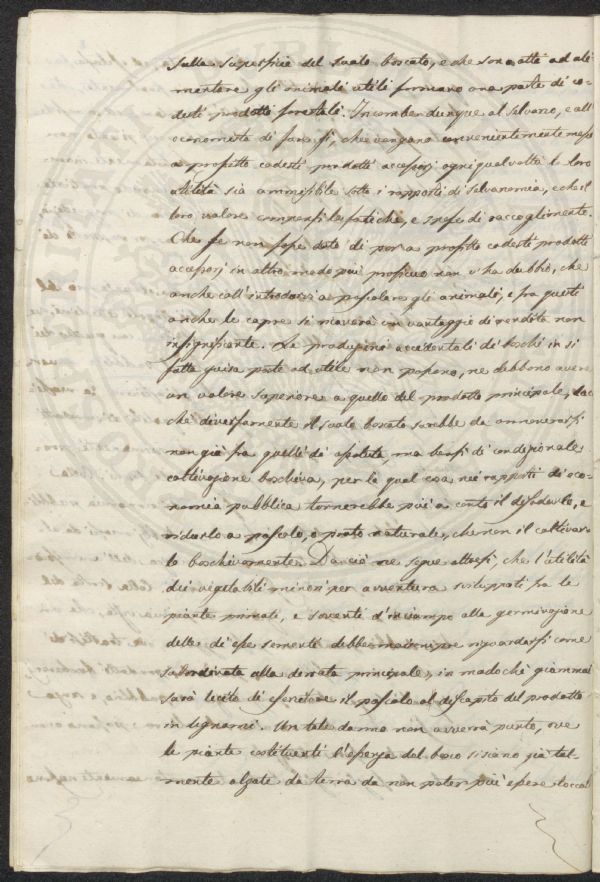 sulla superficie del suolo boscato, e che sono atte ad ali
mentare gli animali utili formano una parte di co-
desti prodotti forestali. Incombe dunque al selvano, e all'
economista di fare sì, che vengano convenientemente messi
a profitto codesti prodotti accessori ogni qual volta la loro
utilità sia ammissibile sotto i rapporti di selvanomia, e che il
loro valore compensi le fatiche, e spese di raccoglimento.
Che se non fosse dato di porre a profitto codesti prodotti
accessori in altro modo più proficuo non v'ha dubbio, che
anche coll'introdurvi a pascolare gli animali, e fra questi
anche le capre si ricaverà un vantaggio di rendita non
insignificante. Le produzioni accidentali di boschi in si
fatta guisa poste ad utile non possono, ne debbono avere
un valore superiore a quello del prodotto principale, dac
chè diversamente il suolo boscato sarebbe da annoverarsi
non già fra quelli di assoluta, ma bensì di condizionale
coltivazione boschiva, per la qual cosa nei rapporti di eco-
nomia pubblica tornerebbe più a conto il disodarlo, e
ridurlo a pascolo, o prato naturale, che non il coltivar-
lo boschivamente. Da ciò ne segue altresì, che l'utilità
dei vegetabili minori per avventura sviluppati fra le
piante primati, e soventi d'inciampo alla germinazione
delle di esse sementi debba mai sempre riguardarsi come
subordinata alla derrata principale, in modo chè giammai
sarà lecito di esercitare il pascolo al discapito del prodotto
in legnami. Un tale danno non avverrà punto, ove
le piante costituenti l'essenza del bosco si siano già tal-
mente alzate da terra da non poter più essere toccat